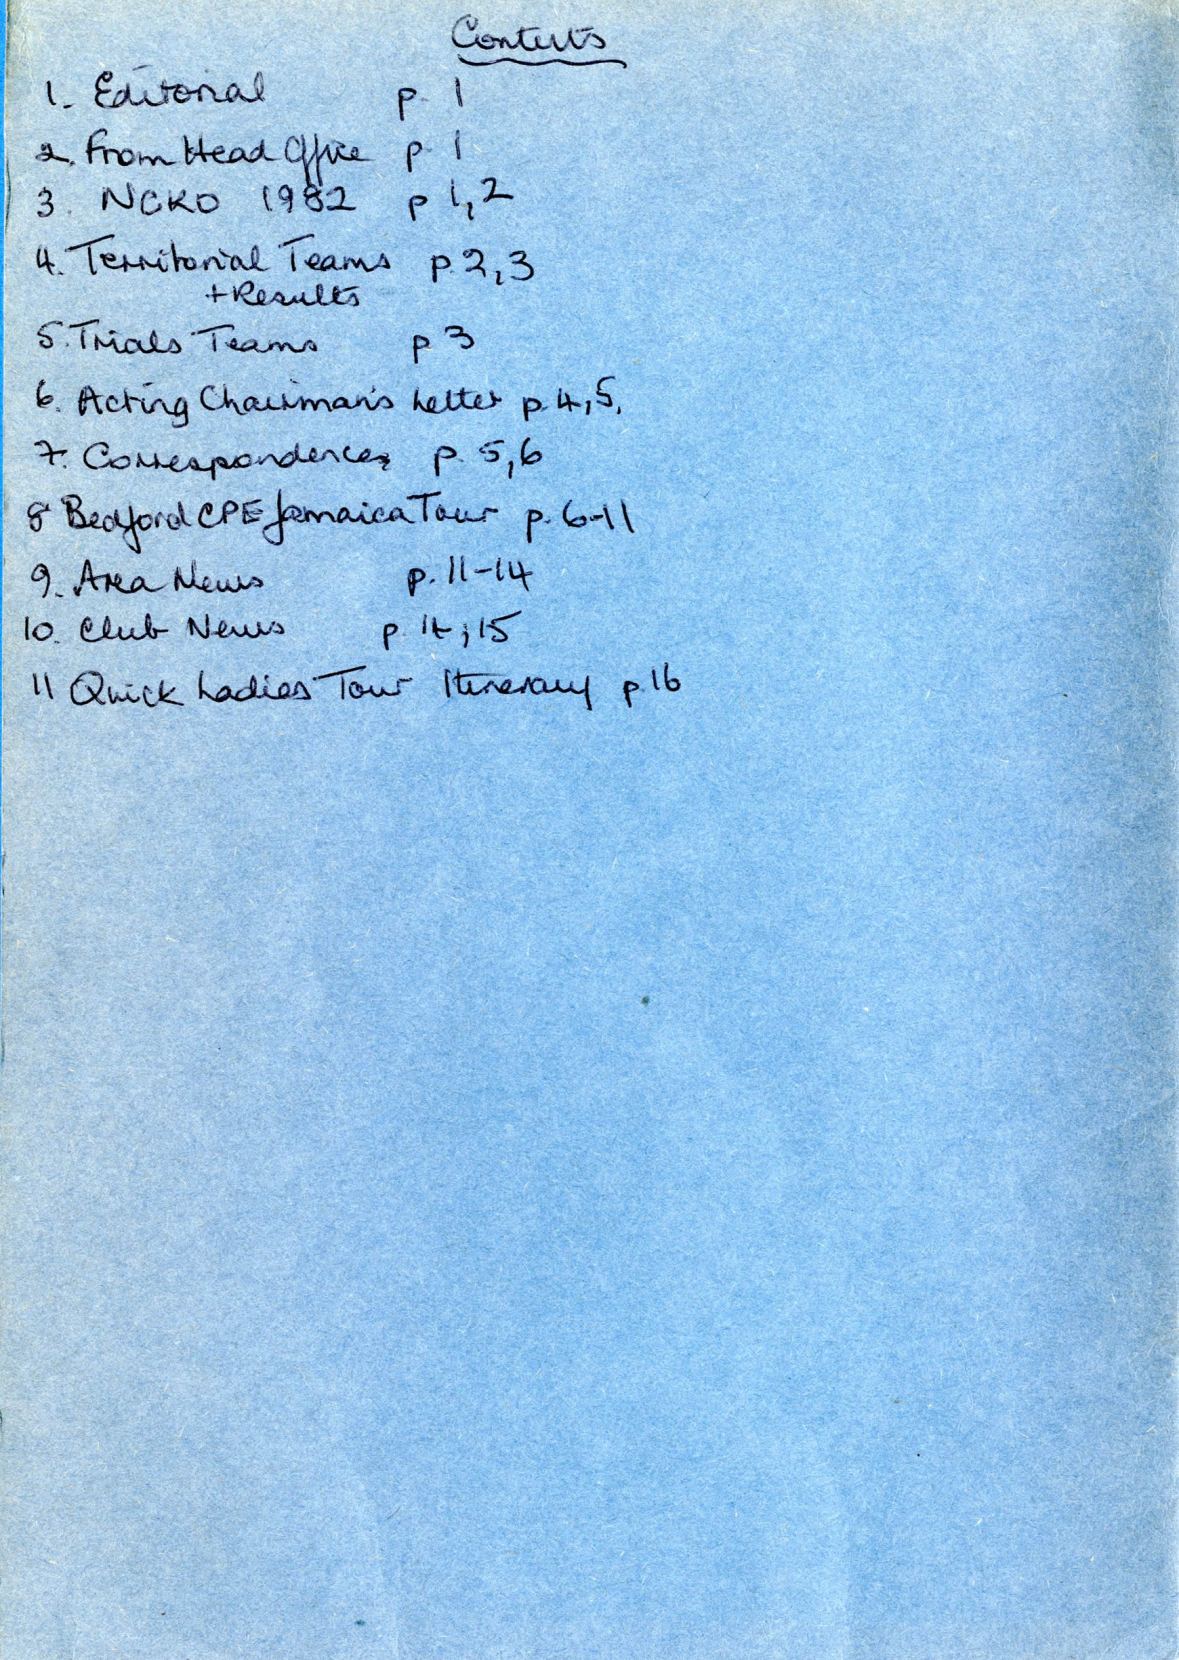 Contents
1. Editorial p. 1
2. From Head Office p. 1
3. NCKO 1982 p 1,2
4. Territorial Teams p. 2,3
+ Results
5. Trials Teams p 3
6. Acting Chairman's Letter p. 4,5.
7. Correspondences p. 5,6
8 Bedford CPE Jamaica Tour p. 6-11
9. Area News p. 11-14
10. Club News p. 14,15
11 Quick Ladies Tour Itinerary p.16